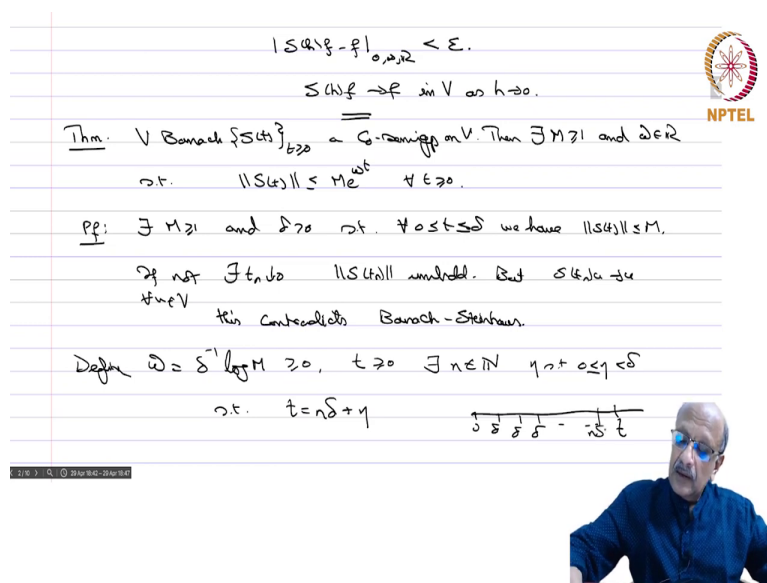 |S(h)f - f|_{0,∞,ℝ} < ε.
S(h)f → f in V as h→0.
NPTEL
Thm. V Banach {S(t)}_{t≥0} a C₀-semigp on V. Then ∃ M≥1 and ω∈ℝ
s.t. ‖S(t)‖ ≤ Me^{ωt} ∀ t≥0.
Pf: ∃ M≥1 and δ>0 s.t. ∀ 0≤t≤δ we have ‖S(t)‖≤M.
If not ∃ tₙ↓0 ‖S(tₙ)‖ unbdd. But S(tₙ)u →u
∀u∈V
this contradicts Banach-Steinhaus.
Define ω = δ⁻¹ log M ≥0, t≥0 ∃ n∈ℕ η s.t 0≤η<δ
s.t. t=nδ+η
0 δ δ δ - nδ t
2 / 10 29 Apr 18:42 - 29 Apr 18:47